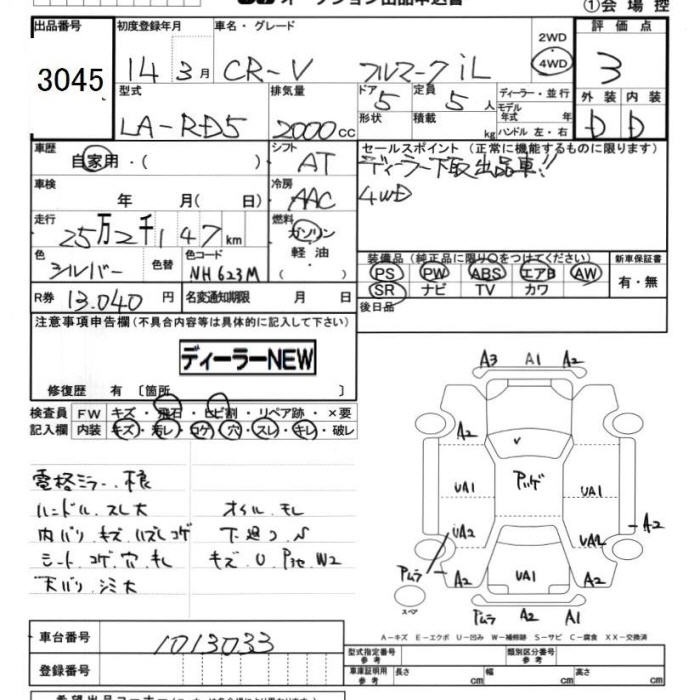 ①会 場 控
出品番号
3045
初度登録年月
14 3月
車名・グレード
CR-V フルマークiL
2WD
4WD
評 価 点
3
型式
LA-RD5
排気量
2000cc
ドア
5
定員
5人
形状
積載
kg
ディーラー・並 行
モデル
年式 年
ハンドル 左・右
外 装
内 装
D
D
車歴
自家用・( )
シフト
AT
セールスポイント (正常に機能するものに限ります)
ディーラー下取出品車!!
4WD
車検
年 月( 日)
冷房
AAC
走行
25万2千147km
燃料
ガソリン
軽 油
( )
色
シルバー
色替
色コード
NH623M
装備品 (純正品に限り○をつけてください)
PS PW ABS エアB AW
SR ナビ TV カワ
新車保証書
有・無
R券
13.040円
名変通知期限 月 日
後日品
注意事項申告欄(不具合内容等は具体的に記入して下さい)
ディーラーNEW
修復歴 有 〔箇所 〕
検査員
記入欄
FW キズ・飛石・ヒビ割・リペア跡・×要
内装 キズ・汚レ・コゲ・穴・スレ・キレ・破レ
電格ミラー
ハンドル.スレ大
オイル.モレ
内バリ.キズ.ハズレコゲ
シート.コゲ.穴.キレ
天バリ.シミ大
A3 A1 A2
A2
UA1
UA1
UA2
A2
A2
UA1
A2
A2 A1
スペア
A-キズ E-エクボ U-凹み W-補修跡 S-サビ C-腐食 XX-交換済
車台番号
1013033
登録番号
型式指定番号
参考
類別区分番号
参考
車庫証明用
参考
長さ cm
幅 cm
高さ cm